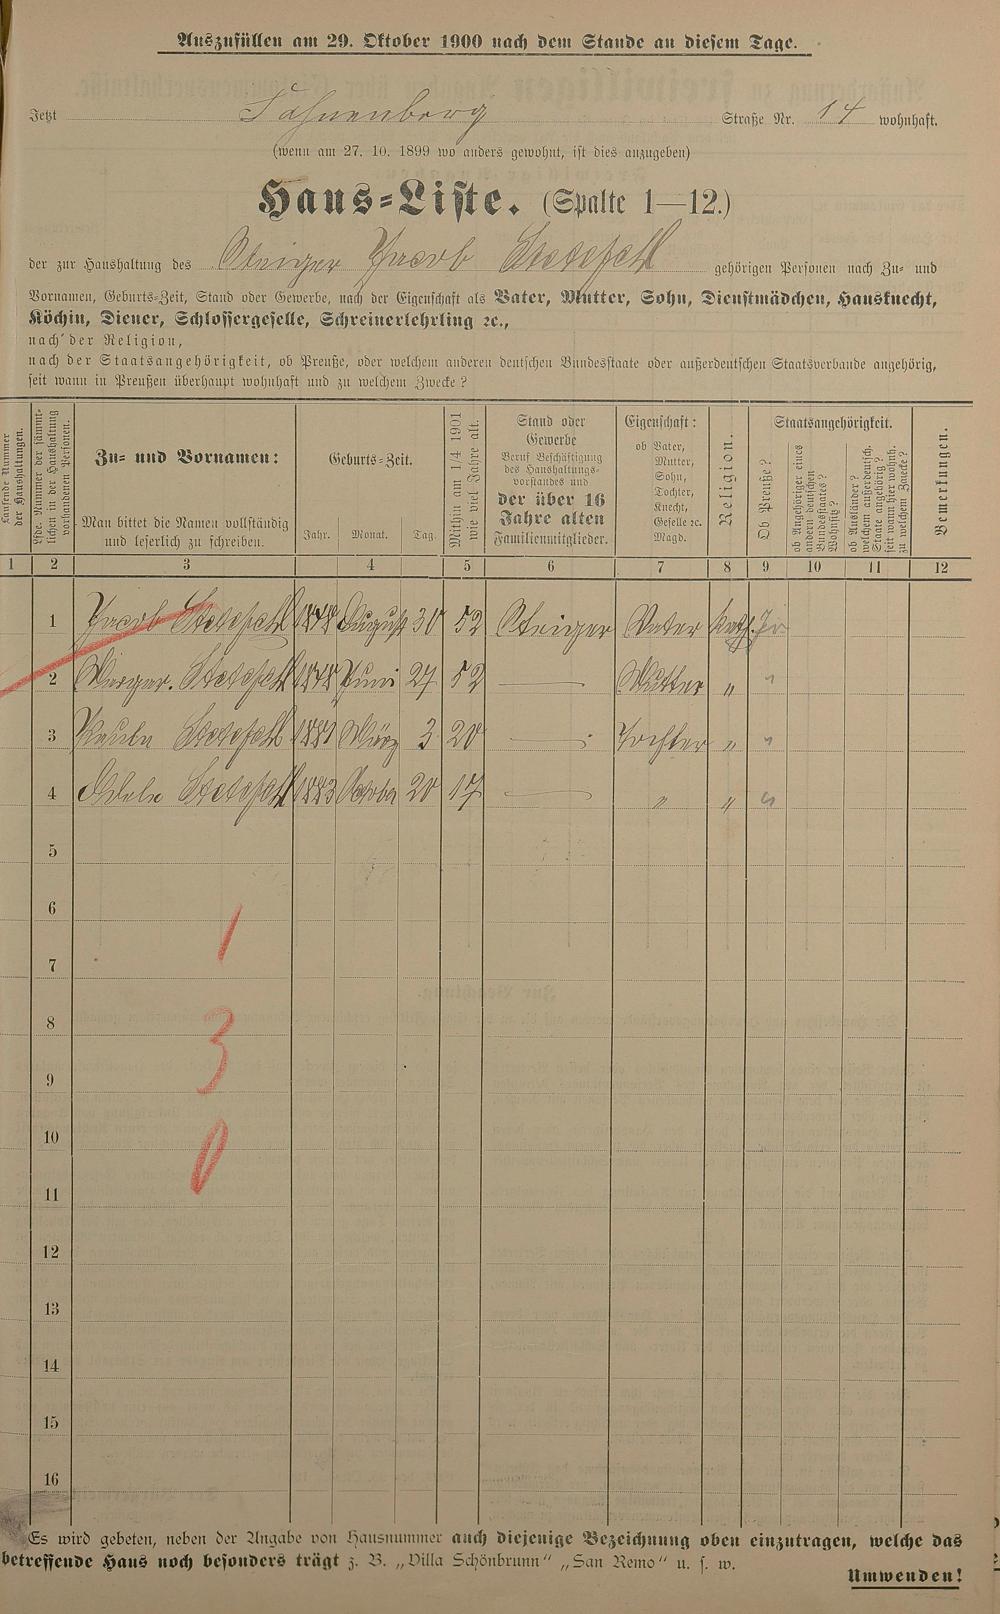 Auszufüllen am 29. Oktober 1900 nach dem Stande an diesem Tage.
Jetzt Straße Nr. 14 wohnhaft.
(wenn am 27. 10. 1899 wo anders gewohnt, ist dies anzugeben)
Haus-Liste. (Spalte 1—12.)
der zur Haushaltung des Steiger Jacob gehörigen Personen nach Zu- und
Vornamen, Geburts-Zeit, Stand oder Gewerbe, nach der Eigenschaft als Vater, Mutter, Sohn, Dienstmädchen, Hausknecht,
Köchin, Diener, Schlossergeselle, Schreinerlehrling ꝛc.,
nach der Religion,
nach der Staatsangehörigkeit, ob Preuße, oder welchem anderen deutschen Bundesstaate oder außerdeutschen Staatsverbande angehörig,
seit wann in Preußen überhaupt wohnhaft und zu welchem Zwecke?
Laufende Nummer
der Haushaltungen.
Lfde. Nummer der sämmt-
lichen in der Haushaltung
vorhandenen Personen.
Zu- und Vornamen:
Man bittet die Namen vollständig
und leserlich zu schreiben.
Geburts-Zeit.
Jahr. Monat. Tag.
Mithin am 1/4 1901
wie viel Jahre alt.
Stand oder
Gewerbe
Beruf Beschäftigung
des Haushaltungs-
vorstandes und
der über 16
Jahre alten
Familienmitglieder.
Eigenschaft:
ob Vater,
Mutter,
Sohn,
Tochter,
Knecht,
Geselle ꝛc.
Magd.
Religion.
Staatsangehörigkeit.
Ob Preuße?
ob Angehöriger eines
andern deutschen
Bundesstaates?
Wohnsitz?
ob Ausländer?
welchem außerdeutsch.
Staate angehörig?
seit wann hier wohnh.
zu welchem Zwecke?
Bemerkungen.
1 2 3 4 5 6 7 8 9 10 11 12
1 Jacob 1848 August 30 52 Steiger Vater kath. Ja
2 Margar. 1848 Juni 27 52 — Mutter " "
3 Paula 1881 März 3 20 — Tochter " "
4 Adele 1883 20 17 — " " "
5
6
1
7
8
3
9
10
0
11
12
13
14
15
16
Es wird gebeten, neben der Angabe von Hausnummer auch diejenige Bezeichnung oben einzutragen, welche das
betreffende Haus noch besonders trägt z. B. „Villa Schönbrunn" „San Remo" u. s. w.
Umwenden!